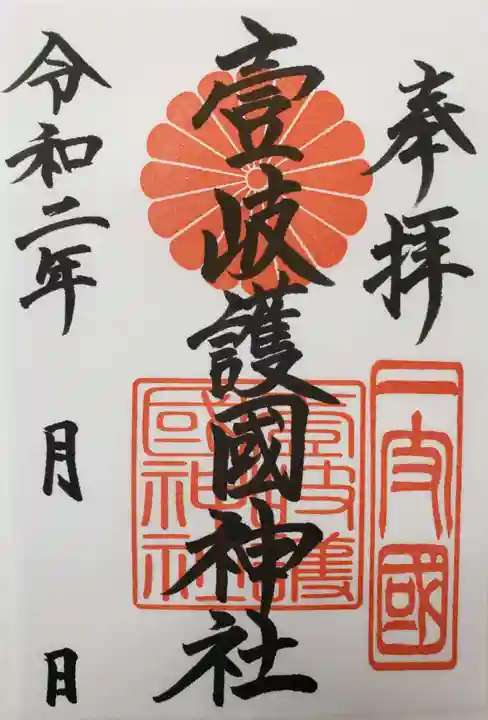 奉拝
一支國
壹岐護國神社
壹岐護國神社
令和二年 月 日